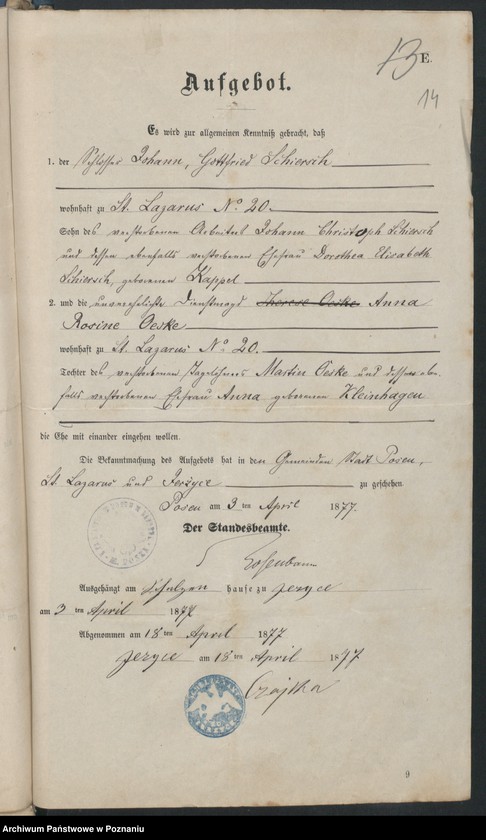 13
E.
14
Aufgebot.
Es wird zur allgemeinen Kenntniß gebracht, daß
1. der Schlosser Johann, Gottfried Schiersch
wohnhaft zu St. Lazarus No 20.
Sohn des verstorbenen Arbeiters Johann Christoph Schiersch
und dessen ebenfalls verstorbenen Ehefrau Dorothea Elisabeth
Schiersch, geborenen Kappel
2. und die unverehelichte Dienstmagd Therese Oeske Anna
Rosine Oeske
wohnhaft zu St. Lazarus No 20.
Tochter des verstorbenen Tagelöhners Martin Oeske und dessen eben-
falls verstorbenen Ehefrau Anna geborenen Kleinhagen
die Ehe mit einander eingehen wollen.
Die Bekanntmachung des Aufgebots hat in den Gemeinden Stadt Posen,
St. Lazarus und Jerzyce zu geschehen.
Posen am 3 ten April 1877.
Der Standesbeamte.
Ausgehängt am Schulzen hause zu Jerzyce
am 3 ten April 1877
Abgenommen am 18 ten April 1877
Jerzyce am 18 ten April 1877
Czajka
9
Archiwum Państwowe w Poznaniu